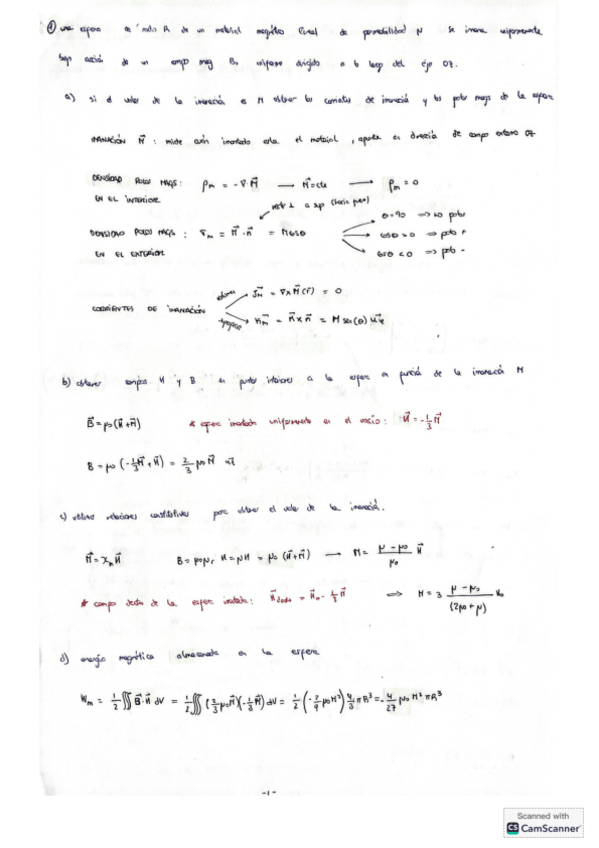 ① una esfera de radio R de un material magnético lineal de permeabilidad μ se imana uniformemente
bajo acción de un campo mag B₀ uniforme dirigido a lo largo del eje OZ.
a) si el valor de la imanación es M obtener las corrientes de imanación y los polos mags de la esfera
IMANACIÓN M⃗ : mide cuán imantado está el material, apunta en dirección de campo externo OZ
DENSIDAD POLOS MAGS: ρm = -∇·M⃗ → M⃗=cte → ρm = 0
EN EL INTERIOR
vect ⊥ a sup (hacia fuera)
DENSIDAD POLOS MAGS: σm = M⃗·n⃗ = M cosθ
θ=90 => no polos
cosθ>0 => polo +
cosθ<0 => polo -
EN EL EXTERIOR
CORRIENTES DE IMANACIÓN
J⃗M = ∇×M⃗(r⃗) = 0
K⃗m = M⃗×n⃗ = M sen(θ)
b) obtener campos H y B en puntos interiores a la esfera en función de la imanación M
B⃗=μ₀(H⃗+M⃗) * esfera imantada uniformemente en el vacío: H⃗=-1/3 M⃗
B = μ₀(-1/3 M⃗+M⃗) = 2/3 μ₀M⃗
c) utilizar relaciones constitutivas para obtener el valor de la imanación.
M⃗=χₘH⃗ B=μ₀μᵣH=μH=μ₀(H⃗+M⃗) → M = (μ-μ₀)/μ₀ H⃗
* campo dentro de la esfera imantada: H⃗dentro = H⃗₀-1/3 M⃗ => M = 3 (μ-μ₀)/(2μ₀+μ) H₀
d) energía magnética almacenada en la esfera
Wm = 1/2 ∭ B⃗·H⃗ dV = 1/2 ∭ (2/3 μ₀M⃗)(-1/3 M⃗) dV = 1/2 (-2/9 μ₀M²) 4/3 πR³ = -4/27 μ₀M²πR³
-1-
Scanned with
CS CamScanner